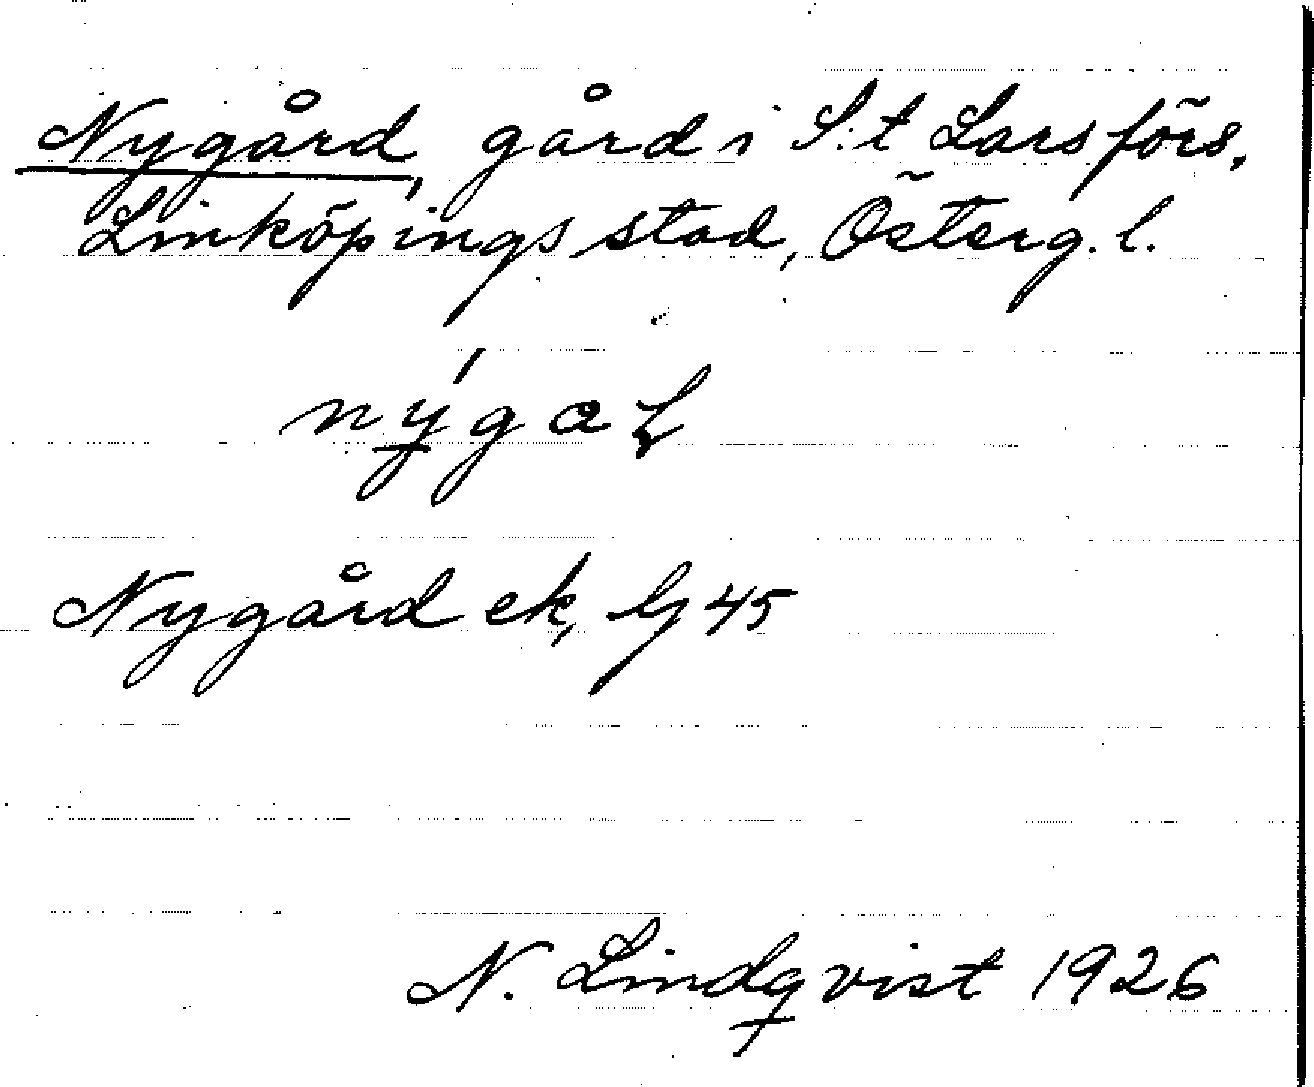 Nygård, gård i S:t Lars förs.,
Linköpings stad, Österg. l.
Nygård ek, bj 45
N. Lindqvist 1926